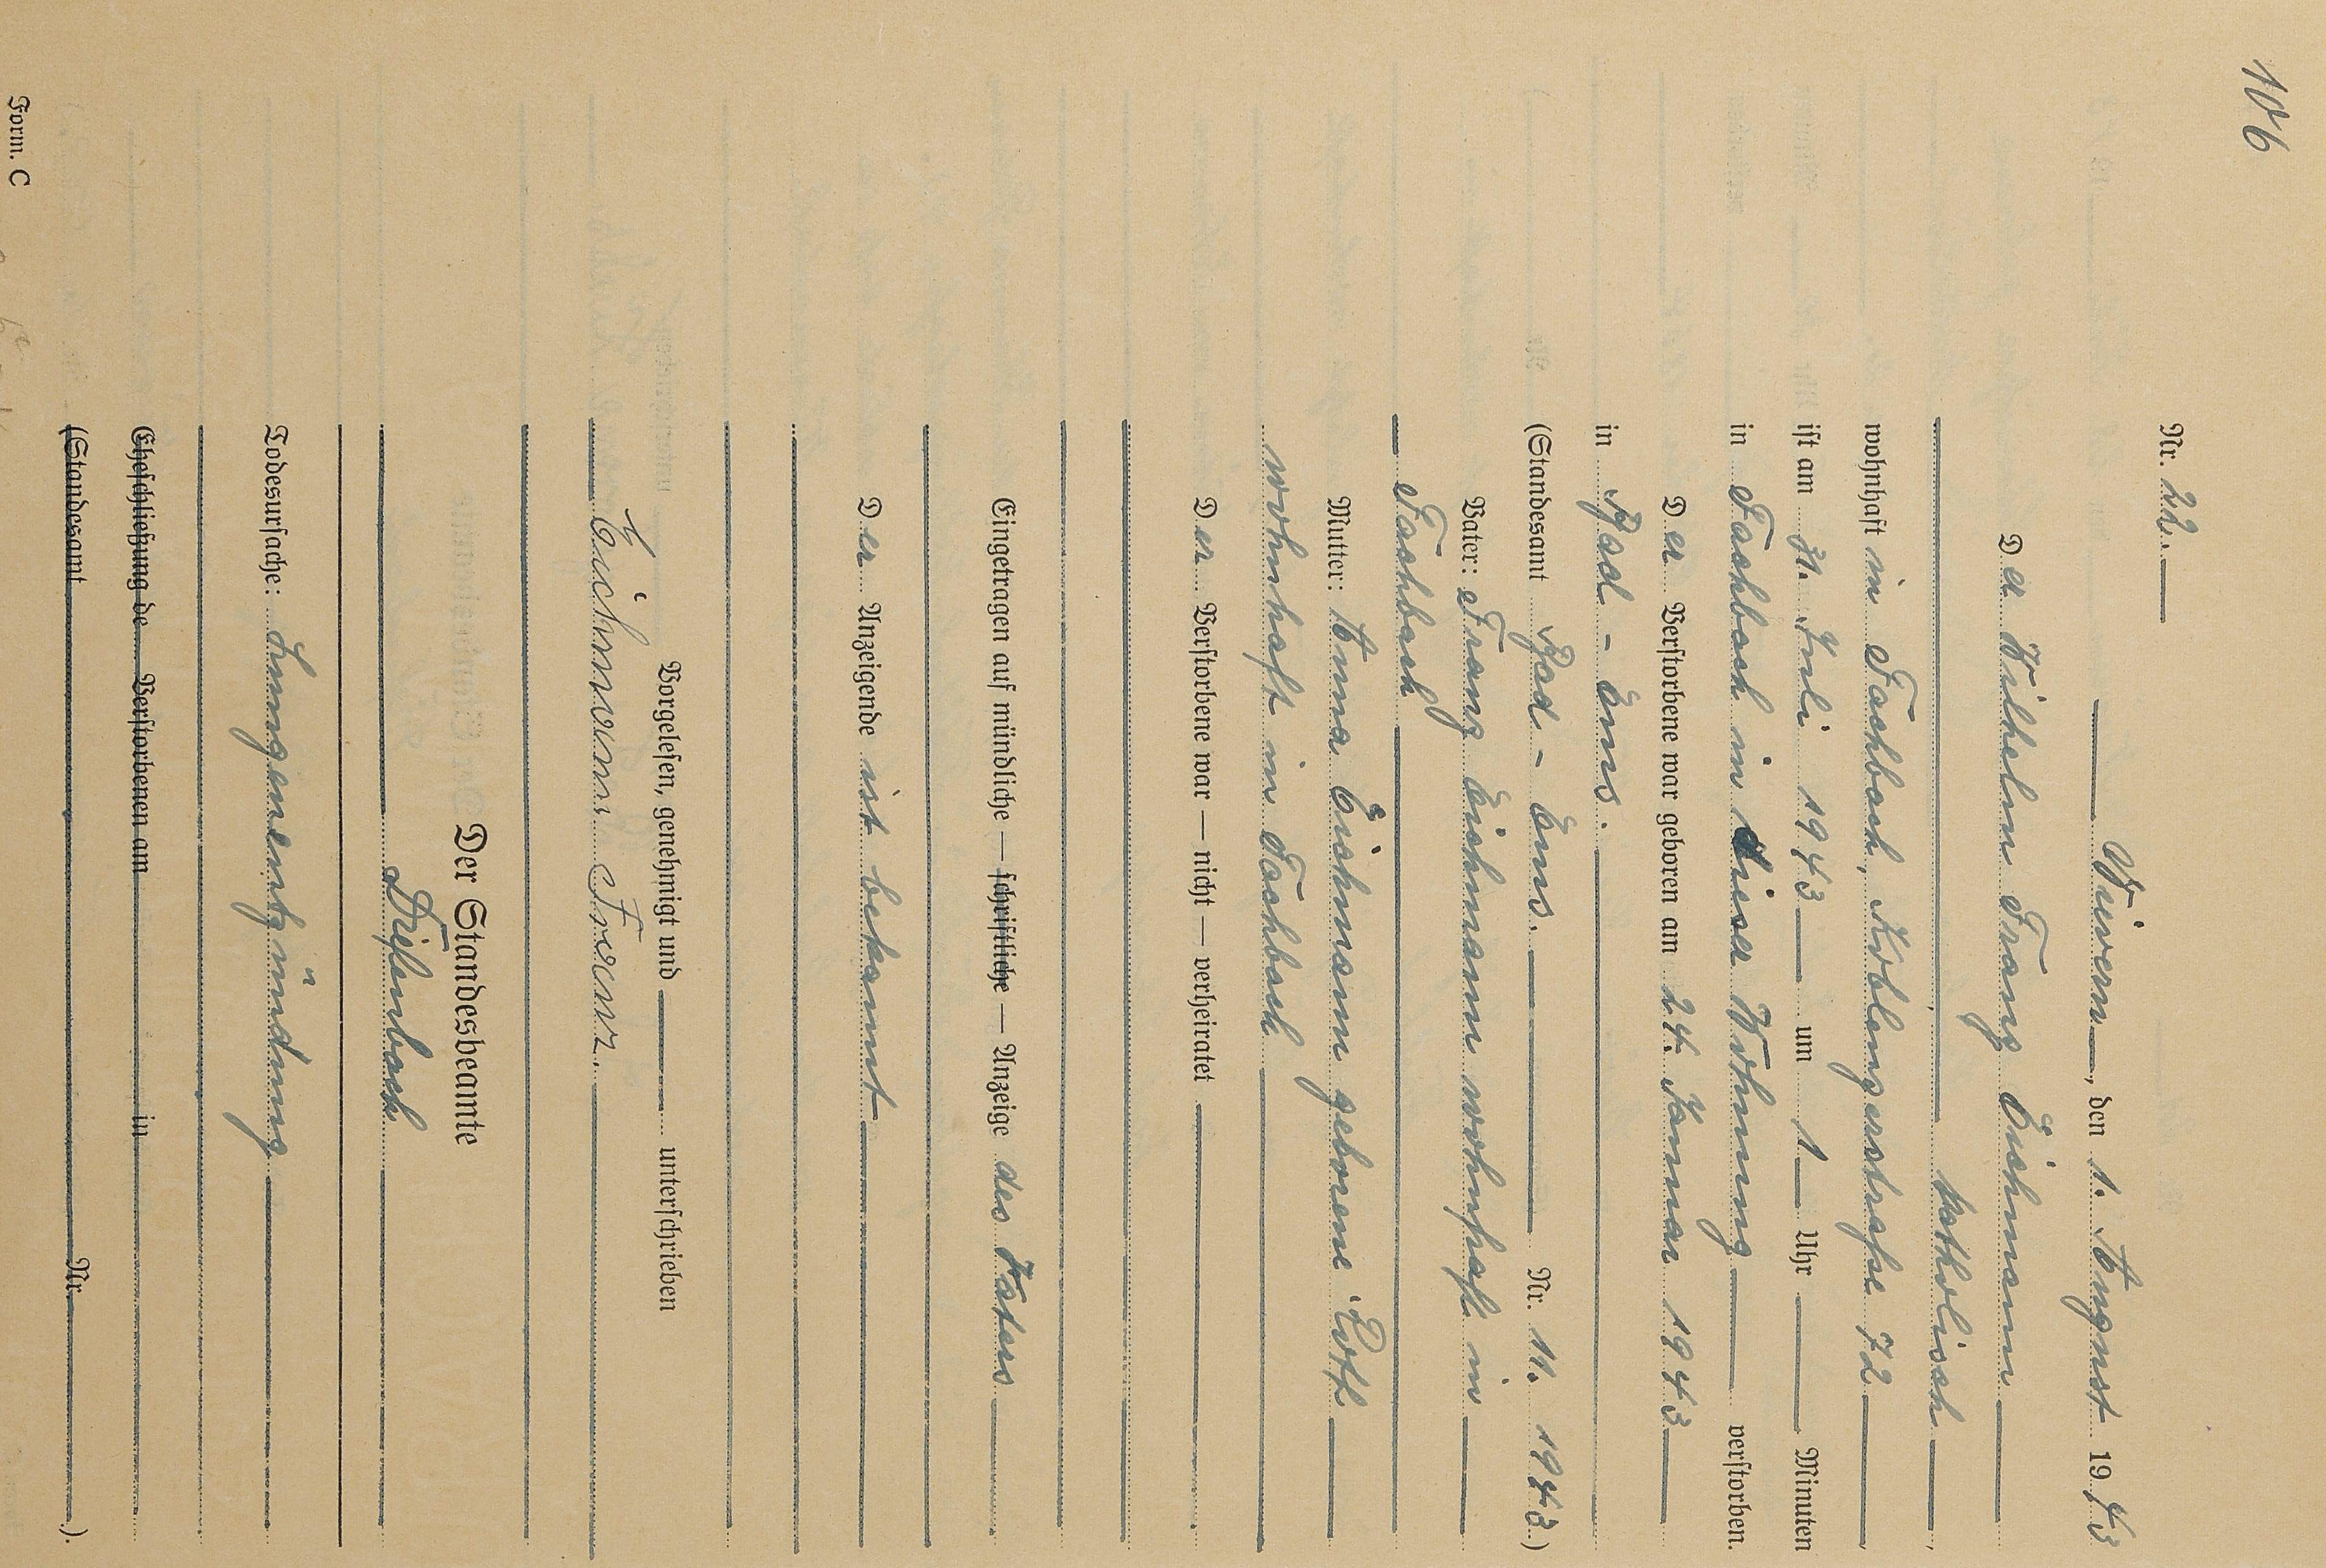 106
Nr. 22.
Fievern, den 1. August 1943
Der Wilhelm Franz Eichmann
katholisch
wohnhaft in Fachbach, Koblenzerstraße 72
ist am 31. Juli 1943 um 1 Uhr Minuten
in Fachbach in dieser Wohnung verstorben.
Der Verstorbene war geboren am 24. Januar 1943
in Bad - Ems.
(Standesamt Bad - Ems. Nr. 11. 1943.)
Vater: Franz Eichmann wohnhaft in
Fachbach
Mutter: Anna Eichmann geborene Roth
wohnhaft in Fachbach
Der Verstorbene war — nicht — verheiratet
Eingetragen auf mündliche — schriftliche — Anzeige des Vaters
Der Anzeigende ist bekannt
Vorgelesen, genehmigt und unterschrieben
Eichmann Franz.
Der Standesbeamte
Diefenbach
Todesursache: Lungenentzündung
Eheschließung de Verstorbenen am in
(Standesamt Nr. ).
Form. C